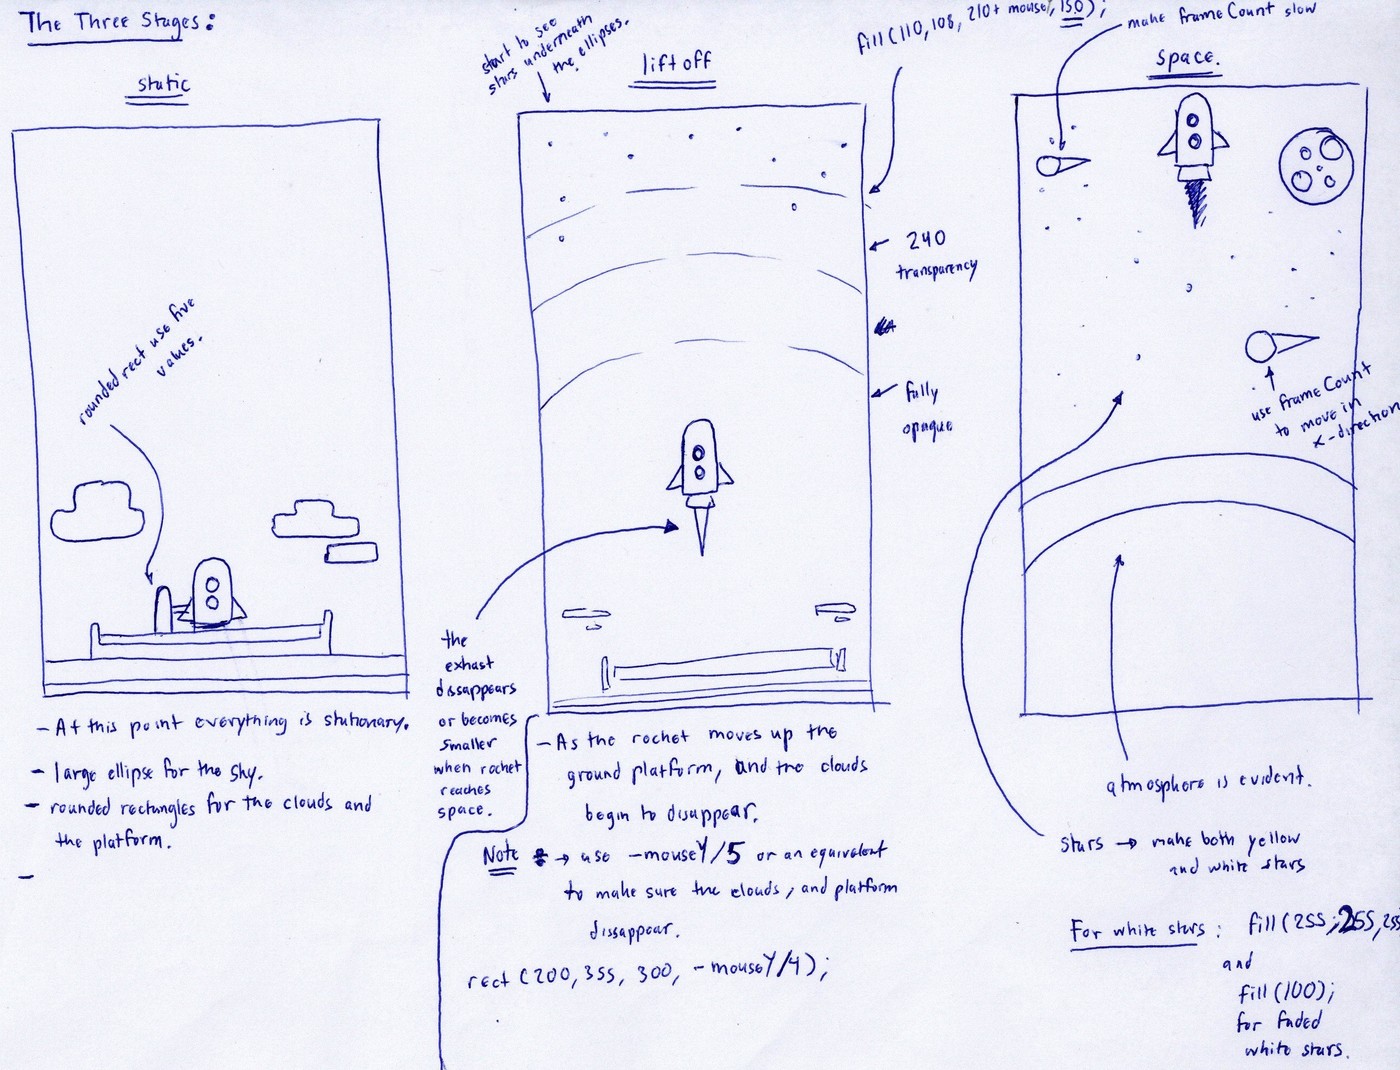 The Three Stages:
static
rounded rect use five
values.
- At this point everything is stationary.
- large ellipse for the sky.
- rounded rectangles for the clouds and
the platform.
-
start to see
stars underneath
the ellipses.
lift off
fill(110, 108, 210+ mouseY, 150);
240
transparency
fully
opaque
the
exhast
dissappears
or becomes
smaller
when rocket
reaches
space.
- As the rocket moves up the
ground platform, and the clouds
begin to disappear.
Note → use -mouseY/5 or an equivalent
to make sure the clouds, and platform
dissappear.
rect (200, 355, 300, -mouseY/4);
make frameCount slow
space.
use frameCount
to move in
x-direction
atmosphere is evident.
stars → make both yellow
and white stars
For white stars: fill(255, 255, 255
and
fill(100);
for faded
white stars.